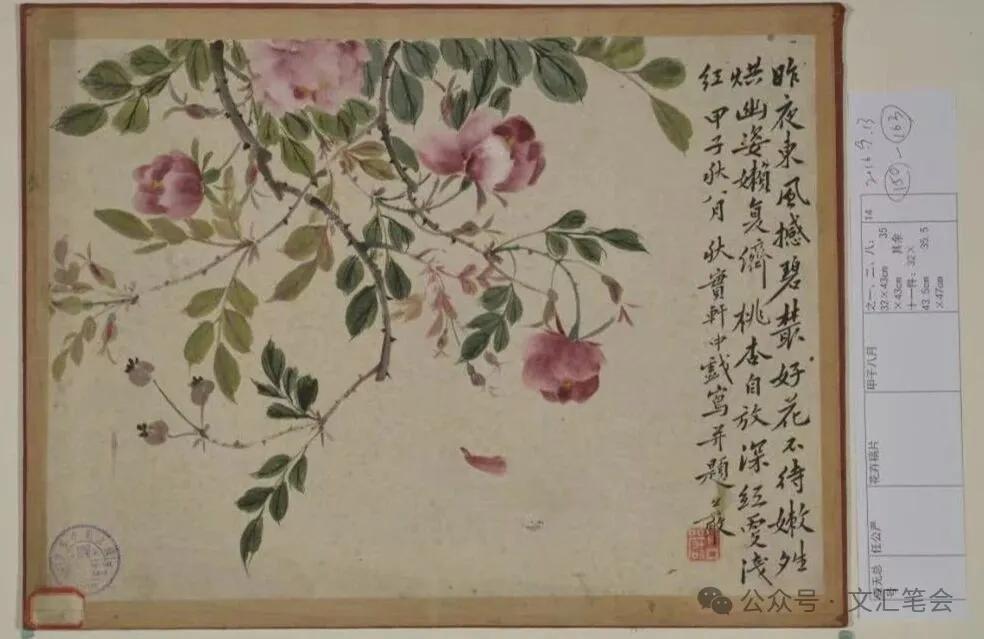 昨夜東風撼碧叢好花不待嫩晴
烘幽姿嬾與儕桃杏自放深紅更淺
紅 甲子秋八月 秋實軒中戲寫并題 公嚴
2016.9.13
150-163
14
之一、二、八：
32×43cm 35
×43cm 其余
十一件：32×
43.5cm 35.5
×47cm
甲子八月
花卉稿片
任公严
暂无总
号
公众号·文汇笔会